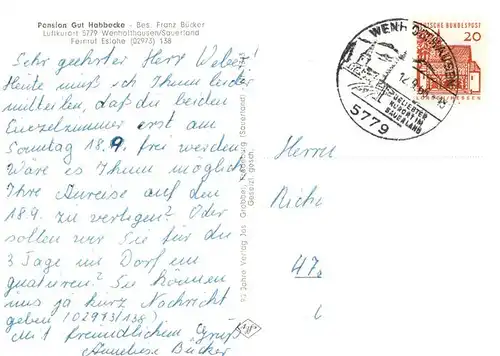 Pension Gut Habbecke - Bes. Franz Bücker
Luftkurort 5779 Wenholthausen/Sauerland
Fernruf Eslohe (02973) 138
Sehr geehrter Herr Weber!
Heute muß ich Ihnen leider
mitteilen, daß die beiden
Einzelzimmer erst am
Sonntag 18.9. frei werden.
Wäre es Ihnen möglich
Ihre Anreise auf den
18.9. zu verlegen? Oder
sollen wir Sie für die
3 Tage im Dorf ein-
quatieren? Sie können
uns ja kurz Nachricht
geben (02973/138)
Mit freundlichem Gruß
Anneliese Bücker
Jahre Verlag Jos. Grobbel, Fredeburg (Sauerland)
Gesetzl. gesch.
WENHOLTHAUSEN
BELIEBTER
KURORT IM
SAUERLAND
5779
DEUTSCHE BUNDESPOST
20
Herrn
Rich
47